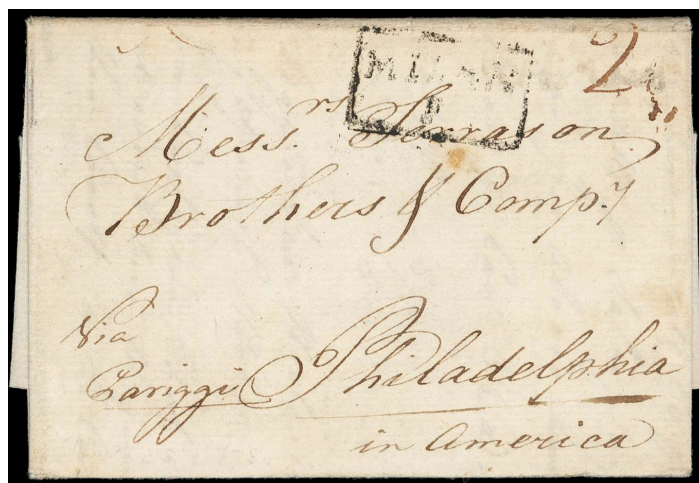 MILAN
2
Mess.rs Terrason
Brothers & Comp.y
Via
Pariggi Philadelphia
in America